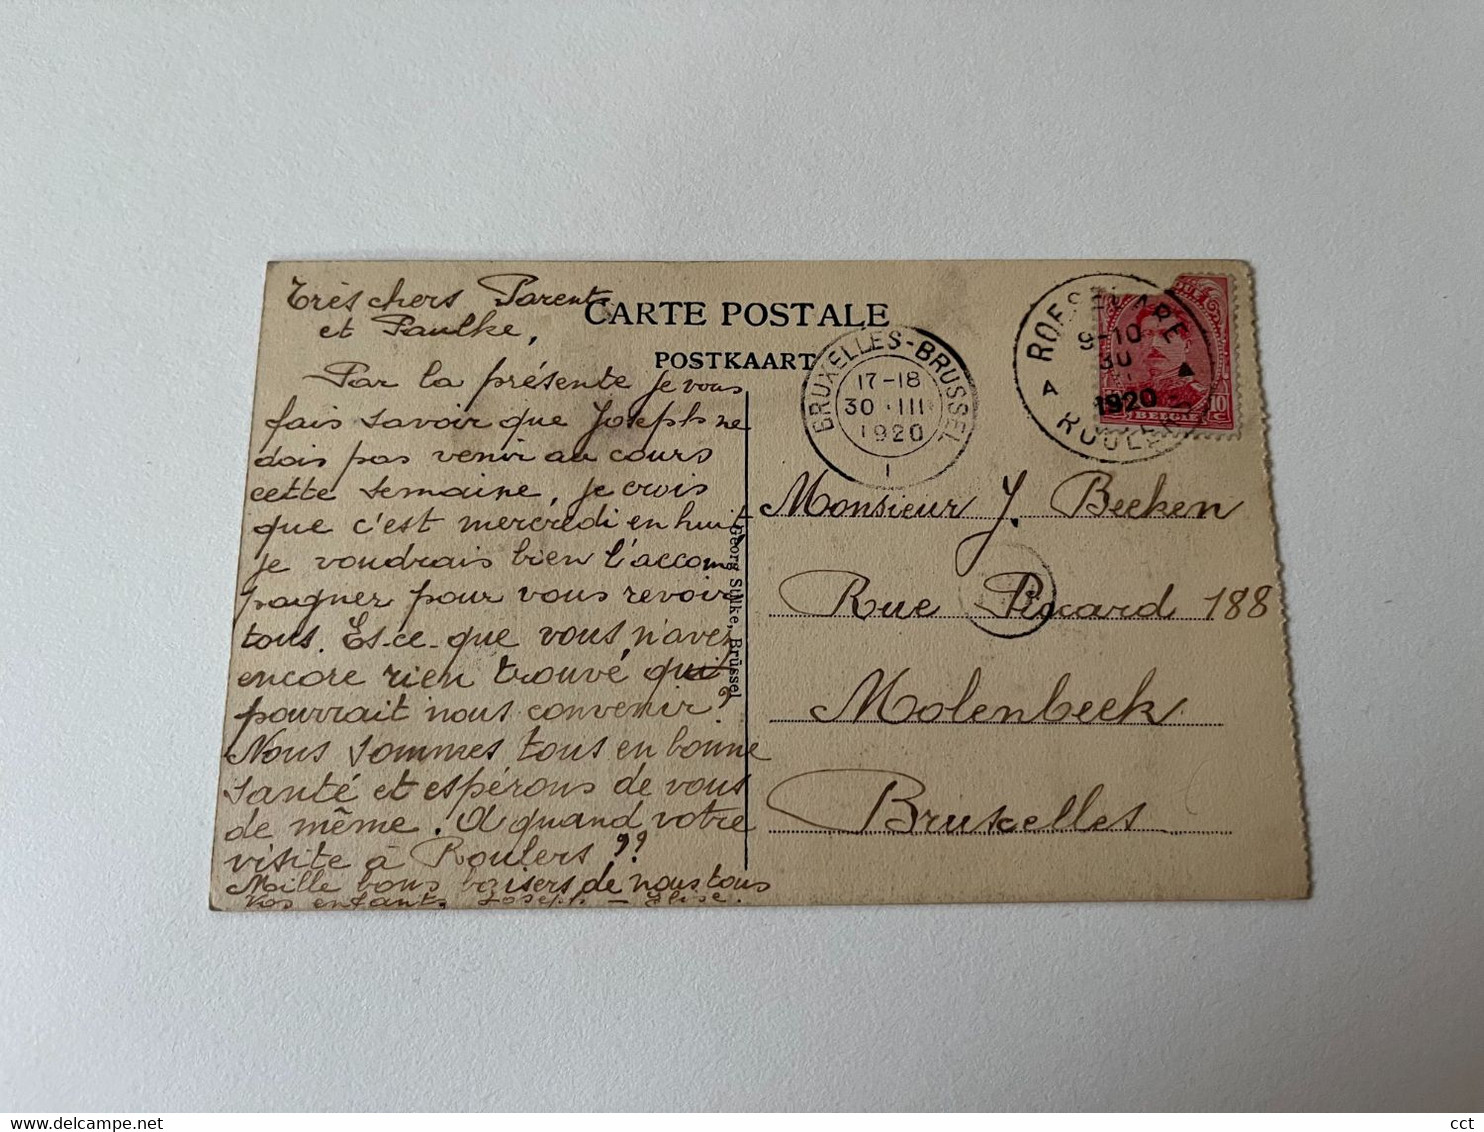 Très chers Parents
et Paulke,
Par la présente je vous
fais savoir que Joseph ne
dois pas venir au cours
cette semaine, je crois
que c'est mercredi en huit
je voudrais bien l'accom
pagner pour vous revoir
tous. Es-ce-que vous n'avez
encore rien trouvé qui
pourrait nous convenir?
Nous sommes tous en bonne
santé et espérons de vous
de même. A quand votre
visite à Roulers ??
Mille bons baisers de nous tous
Vos enfants Joseph - Elise.
CARTE POSTALE
POSTKAART
Georg Stilke, Brüssel
BRUXELLES-BRUSSEL
17-18
30 III
1920
1
ROESELARE
9-10
30
1920
A ROULERS
BELGIE
10 C
Monsieur J. Beeken
Rue Piccard 188
Molenbeek
Bruxelles
cct